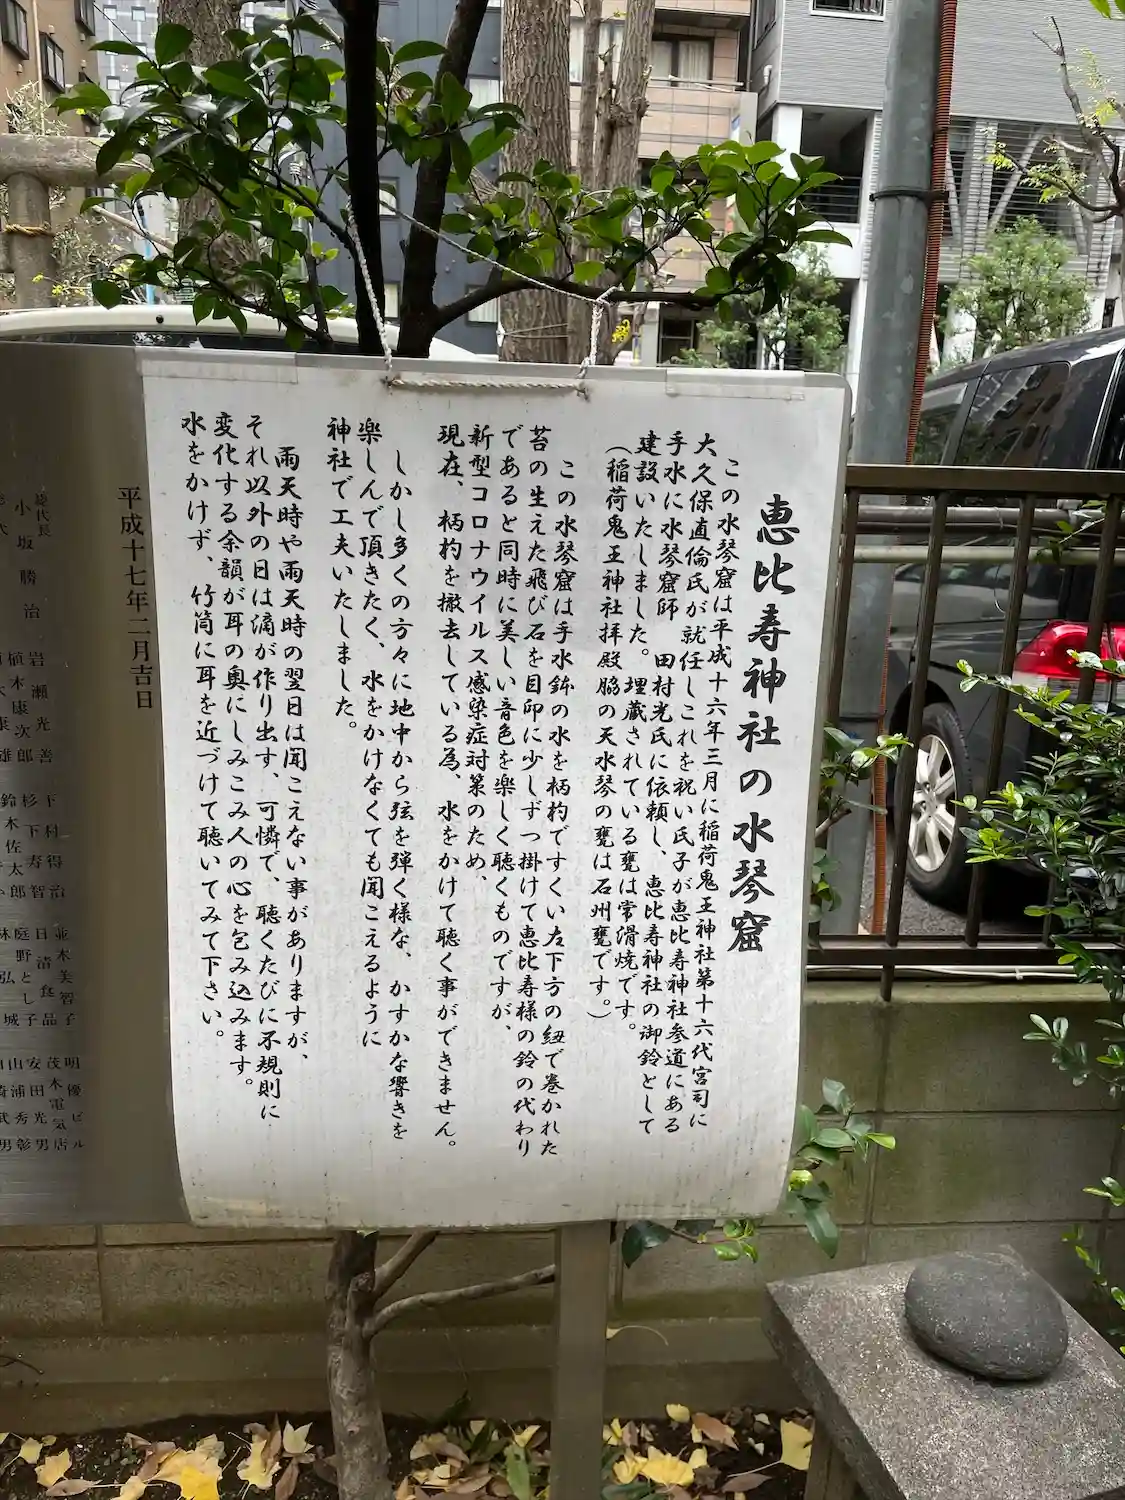 恵比寿神社の水琴窟
この水琴窟は平成十六年三月に稲荷鬼王神社第十六代宮司に
大久保直倫氏が就任しこれを祝い氏子が恵比寿神社参道にある
手水に水琴窟師 田村光氏に依頼し、恵比寿神社の御鈴として
建設いたしました。埋蔵されている甕は常滑焼です。
(稲荷鬼王神社拝殿脇の天水琴の甕は石州甕です。)
この水琴窟は手水鉢の水を柄杓ですくい左下方の紐で巻かれた
苔の生えた飛び石を目印に少しずつ掛けて恵比寿様の鈴の代わり
であると同時に美しい音色を楽しく聴くものですが、
新型コロナウイルス感染症対策のため、
現在、柄杓を撤去している為、水をかけて聴く事ができません。
しかし多くの方々に地中から弦を弾く様な、かすかな響きを
楽しんで頂きたく、水をかけなくても聞こえるように
神社で工夫いたしました。
雨天時や雨天時の翌日は聞こえない事がありますが、
それ以外の日は滴が作り出す、可憐で、聴くたびに不規則に
変化する余韻が耳の奥にしみこみ人の心を包み込みます。
水をかけず、竹筒に耳を近づけて聴いてみて下さい。
平成十七年二月吉日
総代長
小坂勝治